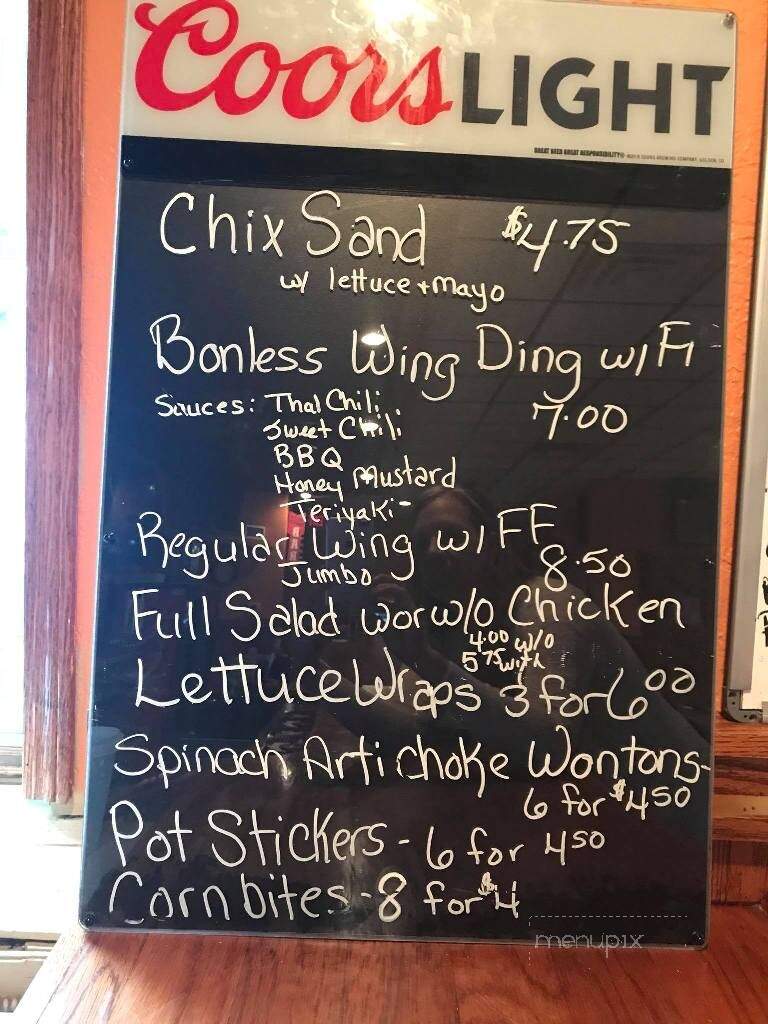 Coors LIGHT
GREAT BEER GREAT RESPONSIBILITY®
Chix Sand $4.75
w/ lettuce + mayo
Bonless Wing Ding w/ FF
Sauces: Thai Chili 7.00
Sweet Chili
BBQ
Honey Mustard
Teriyaki
Regular Wing w/ FF
Jumbo 8.50
Full Salad w or w/o Chicken
4.00 w/o
5 75 with
Lettuce Wraps 3 for 6 00
Spinach Artichoke Wontons-
6 for $4 50
Pot Stickers - 6 for 4 50
Corn bites - 8 for $4
menupix